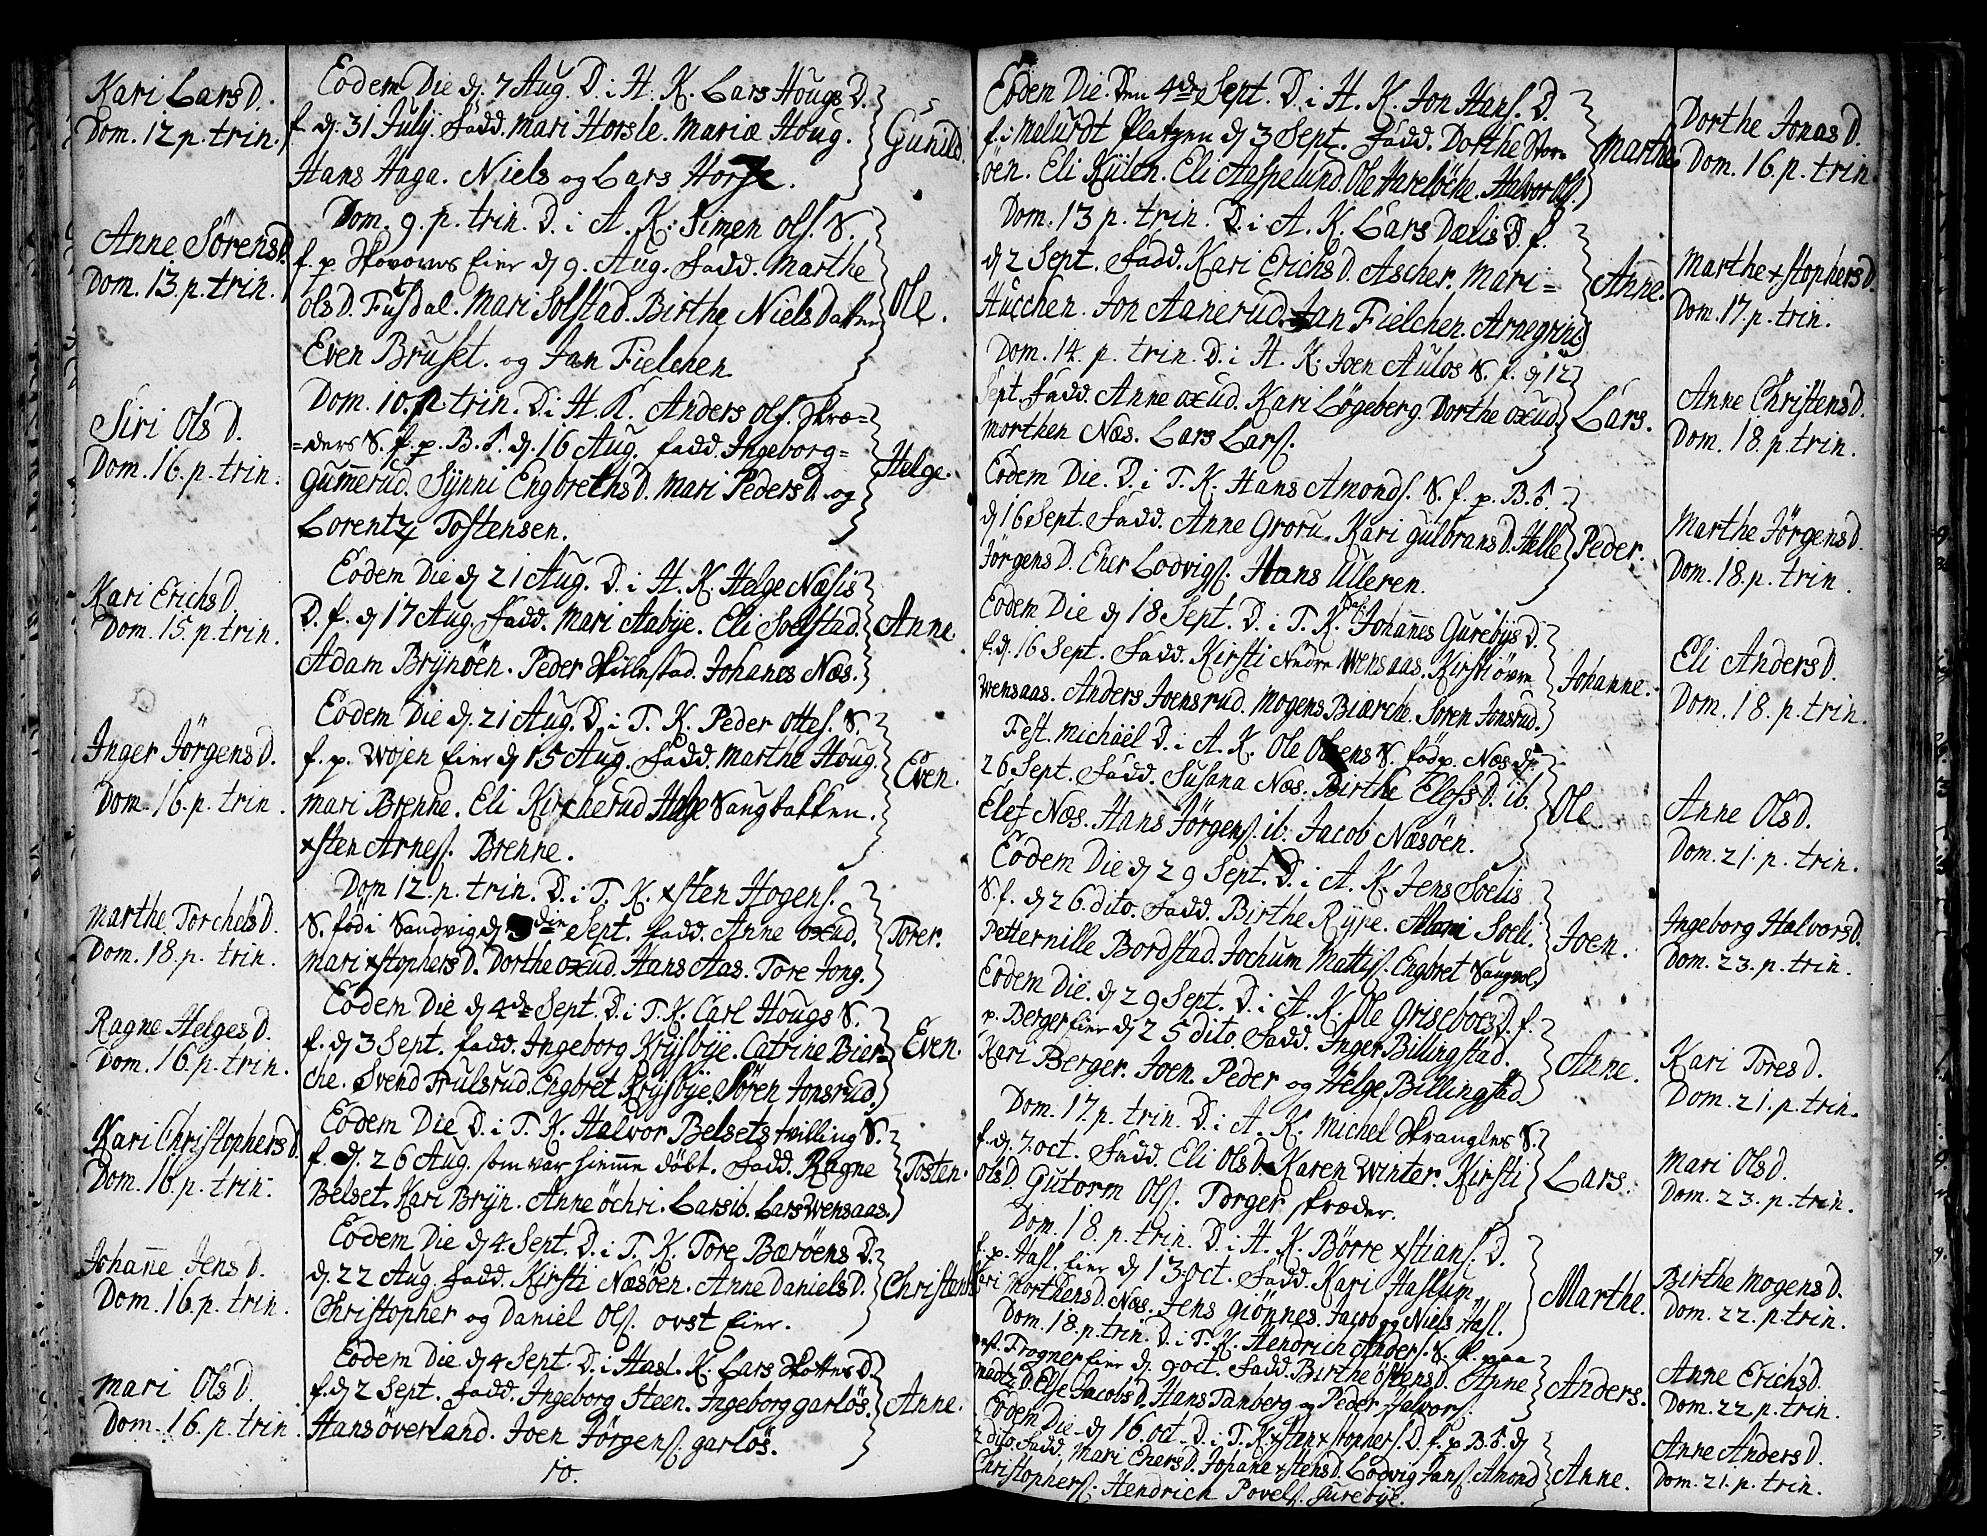 Kari Lars D.
Dom. 12 p. trin.
Anne Sörens D.
Dom. 13. p. trin.
Siri Ols D.
Dom. 16. p. trin.
Kari Erichs D.
Dom. 15. p. trin.
Inger Jörgens D.
Dom. 16. p. trin.
Marthe Torchels D.
Dom. 18. p. trin.
Ragne Helges D.
Dom. 16. p. trin.
Kari Christophers D.
Dom. 16. p. trin.
Johañe Jens D.
Dom. 16. p. trin.
Mari Ols D.
Dom. 16. p. trin.
Eodem Die d. 7 Aug. D. i H. K. Lars Hougs D.
f. d. 31 July. Fadd. Mari Horsle. Mariæ Houg.
Hans Haga. Niels og Lars Horsle.
Gunild.
Dom. 9. p. trin. D. i A. K. Simen Ols. S.
f. p. Skovoms Eier d. 9. Aug. Fadd. Marthe
Ols D. Fusdal. Mari Solstad. Birthe Niels Datter
Even Bruset. og Jan Fielchen.
Ole.
Dom. 10. p. trin. D. i H. K. Anders Ols. Skræ=
=ders S. f. p. B. F. d. 16 Aug. Fadd. Ingeborg=
Gum̃erud. Synni Engbreths D. Mari Peders D. og
Lorentz Tostensen.
Helge.
Eodem Die d. 21 Aug. D. i H. K. Helge Næsis
D. f. d. 17 Aug. Fadd. Mari Aabye. Eli Soelstad.
Adam Brynöen. Peder Skillestad. Johanes Næs.
Anne.
Eodem Die d. 21 Aug. D. i T. K. Peder Ottes. S.
f. p. Wojen Eier d. 15 Aug. Fadd. Marthe Houg.
Mari Brenne. Eli Kircherud Helge Saugbakken.
xsten Arnes. Brenne.
Even.
Dom 12. p. trin. D. i T. K. xsten Hogens.
S. föd i Sandvig d. Sept. Fadd. Anne Oxud.
Mari xstophers D. Dorthe Oxud. Hans Aas. Tore Jong.
Torer.
Eodem Die d. 4de Sept. D. i T. K. Carl Hougs S.
f. d. 3 Sept. Fadd. Ingeborg Krysbye. Catrine Bier=
che. Svend Trulsrud. Engbret Krysbye. Sören Jonsrud.
Even.
Eodem Die D. i T. K. Halvor Belsets tvilling S.
f. d. 26 Aug. som var hiemme döbt. Fadd. Ragne
Belset. Kari Bryn. Anne Öchri. Lars ib. Lars Wensaas.
Tosten.
Eodem Die d. 4. Sept. D. i T. K. Tore Bæröens D.
d. 22 Aug. Fadd. Kirsti Næsöen. Anne Daniels D.
Christopher og Daniel Ols. ovst Eier.
Christense
Eodem Die d. 4 Sept. D. i Hasl. K. Lars Skottes D.
f. d. 2 Sept. Fadd. Ingeborg Steen. Ingeborg Garlös.
Hans Överland. Joen Jörgens. Garlös.
Anne.
10.
Eodem Die. Den 4de Sept. D. i H. K. Jon Hans. D.
f. i Melurdt Platzen d. 3 Sept. Fadd. Dorthe Stor=
öen. Eli Kiilen. Eli Aaspelund. Ole Harelöche. Halvor Ols.
Marthe
Dom. 13 p. trin. D. i A. K. Lars Dælis D. f.
d. 2 Sept. Fadd. Kari Erichs D. Ascher. Mari=
Hucchen. Jon Aanerud. Jan Fielchen. Arne grini.
Anne.
Dom. 14. p. trin. D. i H. K. Joen Aulos S. f. d. 12
Sept. Fadd. Anne Oxud. Kari Lögeberg. Dorthe Oxud.
Morthen Næs. Lars Lars.
Lars.
Eodem Die. D. i T. K. Hans Amonds. S. f. p. B. F.
d. 16 Sept. Fadd. Anne Groru. Kari Gulbrans D. Helle
Jörgens D. Eher Lodvigs. Hans Ulleren.
Peder.
Eodem Die d. 18 Sept. D. i T. K. Johañes Gurebys D.
f. d. 16 Sept. Fadd. Kirsti Nedre Wensaas. Kirsti övre
Wensaas. Anders Joensrud. Mogens Biærche. Sören Jonsrud.
Johanne.
Fest. Michaël D. i A. K. Ole Olsens S. föd p. Næs d.
26 Sept. Fadd. Susana Næs. Birthe Elefs D. ib.
Elef Næs. Hans Jörgens. ib. Jacob Næsöen.
Ole.
Eodem Die d. 29 Sept. D. i A. K. Jens Soelis
S. f. d. 26. dito. Fadd. Birthe Rype. Mari Soeli.
Petternille Bordstad. Jochum Mattis. Engbret Saugvol.
Joen.
Eodem Die. d. 29 Sept. D. i A. K. Ole Griseboes D. f.
p. Berger Eier d. 25 dito. Fadd. Inger Billingstad.
Kari Berger. Joen. Peder og Helge Billingstad.
Anne.
Dom. 17. p. trin. D. i A. K. Michel Skrangles S.
f. d. 7. Oct. Fadd. Eli Ols D. Karen Winter. Kirsti
Ols D. Gutorm Ols. Torger Skræder.
Lars.
Dom. 18. p. trin. D. i H. K. Börre xstians. D.
f. p. Hasl. Eier d. 13. Oct. Fadd. Kari Haslum
Kari Morthens D. Næs. Jens Giönnes. Jacob og Niels Hasl.
Marthe.
Dom. 18. p. trin. D. i T. K. Hendrich Anders. S. f. paa
Trogner Eier d. 9 Oct. Fadd. Birthe Östens D. Anne
Madtz D. Else Jacobs D. Hans Tanberg og Peder Halvors.
Anders.
Eodem Die d. 16. Oct. D. i T. K. xstan xstophers. D. f. p. B. F. d.
2 dito. Fadd. Mari Ehers D. Johane xstens D. Lodvig Jans. Amond
Christophers. Hendrich Povels. Gurebye.
Anne.
Dorthe Jonas D.
Dom. 16. p. trin
Marthe xstophers D.
Dom. 17. p. trin.
Anne Christens D.
Dom. 18. p. trin.
Marthe Jörgens D.
Dom. 18. p. trin.
Eli Anders D.
Dom. 18. p. trin.
Anne Ols D.
Dom. 21. p. trin.
Ingeborg Halvors D.
Dom. 23. p. trin.
Kari Tores D.
Dom. 21. p. trin.
Mari Ols D.
Dom. 23. p. trin.
Birthe Mogens D.
Dom. 22. p. trin.
Anne Erichs D.
Dom. 22. p. trin.
Anne Anders D.
Dom. 21. p. trin.